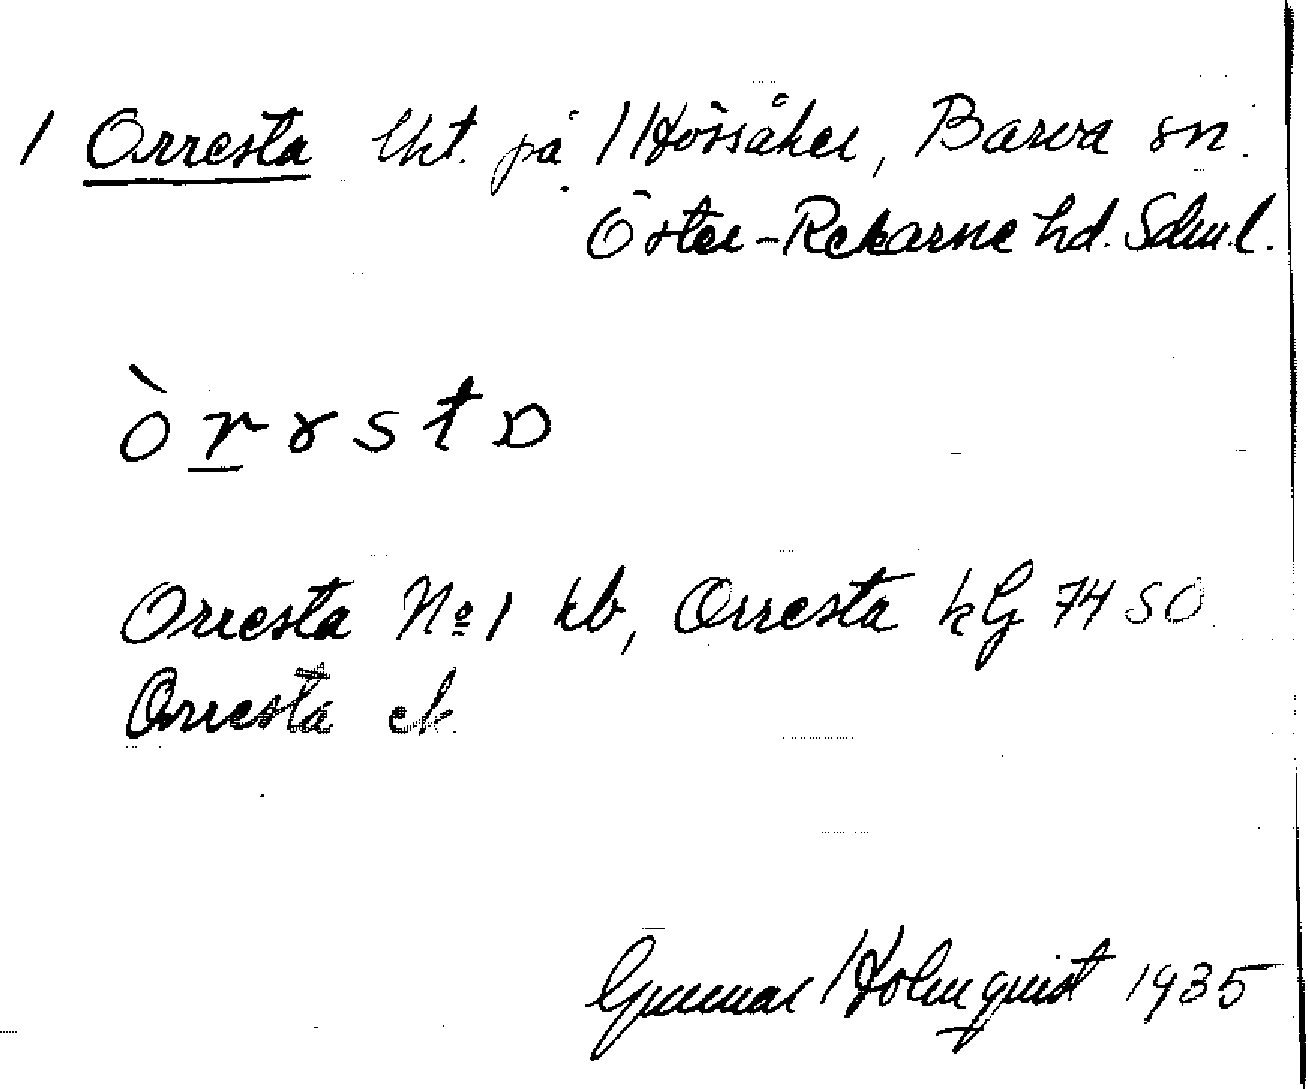 1 Orresta lht. på Hössåker, Barva sn.
Öster-Rekarne hd. Södml.
òr̲rstɒ
Orresta No 1 kb, Orresta kG 74 SO.
Orresta ek.
Gunnar Holmquist 1935